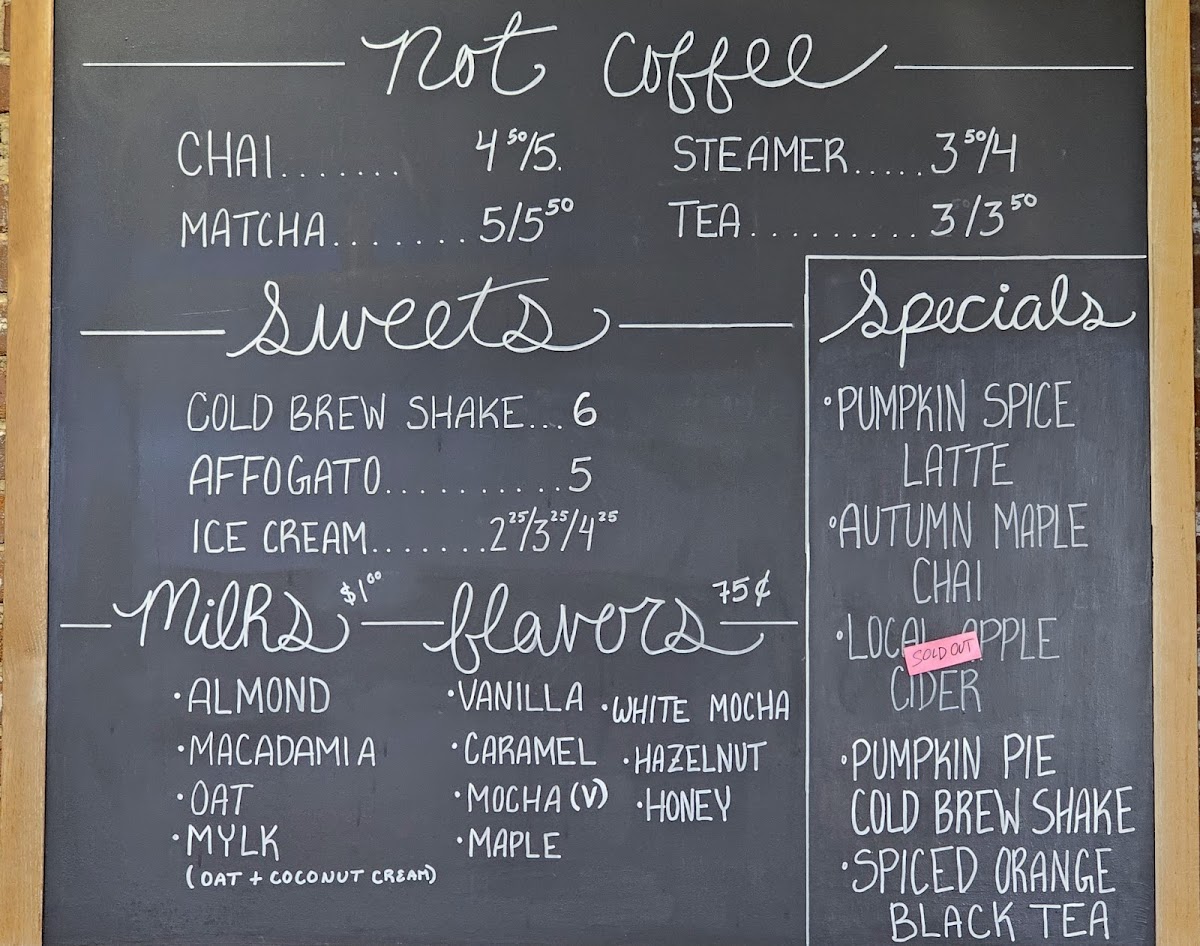 not coffee
CHAI....... 4⁵⁰/5.
MATCHA....... 5/5⁵⁰
STEAMER..... 3⁵⁰/4
TEA.......... 3/3⁵⁰
Sweets
COLD BREW SHAKE... 6
AFFOGATO.......... 5
ICE CREAM....... 2²⁵/3²⁵/4²⁵
Milks $1⁰⁰
• ALMOND
• MACADAMIA
• OAT
• MYLK
(OAT + COCONUT CREAM)
flavors 75¢
• VANILLA
• CARAMEL
• MOCHA (V)
• MAPLE
• WHITE MOCHA
• HAZELNUT
• HONEY
Specials
• PUMPKIN SPICE
LATTE
• AUTUMN MAPLE
CHAI
• LOCAL APPLE
SOLD OUT
CIDER
• PUMPKIN PIE
COLD BREW SHAKE
• SPICED ORANGE
BLACK TEA